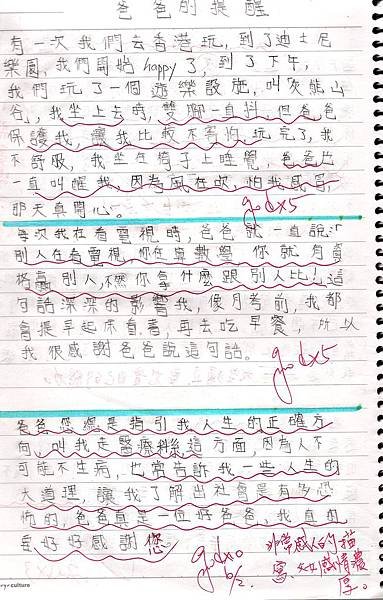 爸爸的提醒
有一次我們去香港玩,到了迪士尼
樂園,我們開始happy了,到了下午,
我們玩了一個遊樂設施,叫灰熊山
谷,我坐上去時,雙腳一直抖但爸爸
保護我,讓我比較不害怕,玩完了,我
不舒服,我坐在椅子上睡覺,爸爸
一直叫醒我,因為風在吹,怕我感冒,
那天真開心。
good x5
每次我在看電視時,爸爸就一直說:「
別人在看電視,你在算數學你就有資
格贏別人,不然你拿什麼跟別人比!」這
句話深深的影響我,使月考前,我都
會提早起床看書,再去吃早餐,所以
我很感謝爸爸說這句話。
good x5
爸爸總是指引我人生的正確方
向,叫我走醫療這方面,因為人不
可能不生病,也常告訴我一些人生的
大道理,讓我了解出社會是有多恐
怖的,爸爸真是一位好爸爸,我真的
要好好感謝您
good x10
6/2.
非常感人的描
寫,父女感情濃
厚。
culture